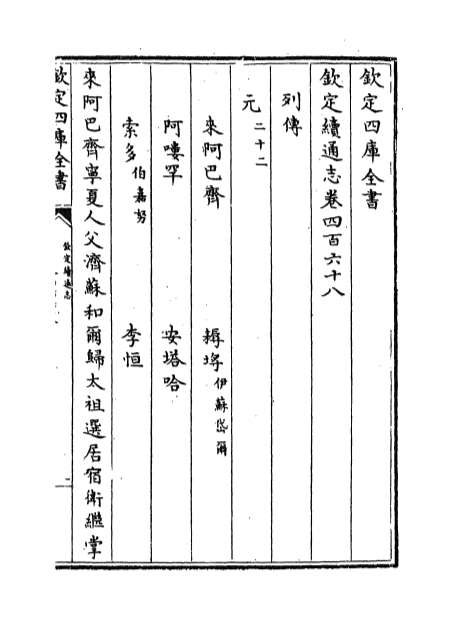 欽定四庫全書
欽定續通志卷四百六十八
列傳
元二十二
來阿巴齊
伊蘇岱爾
阿嘍罕 安塔哈
索多伯嘉努 李恒
來阿巴齊寧夏人父濟蘇和爾歸太祖選居宿衛繼掌
欽定四庫全書
欽定續通志